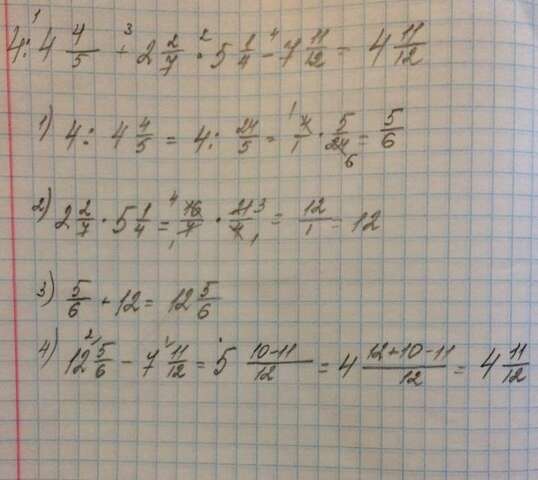 4 : 4 4/5 + 2 2/7 · 5 1/4 - 7 11/12 = 4 11/12
1) 4 : 4 4/5 = 4 : 24/5 = 4/1 · 5/24 = 5/6
2) 2 2/7 · 5 1/4 = 16/7 · 21/4 = 12/1 = 12
3) 5/6 + 12 = 12 5/6
4) 12 5/6 - 7 11/12 = 5 10-11/12 = 4 12+10-11/12 = 4 11/12